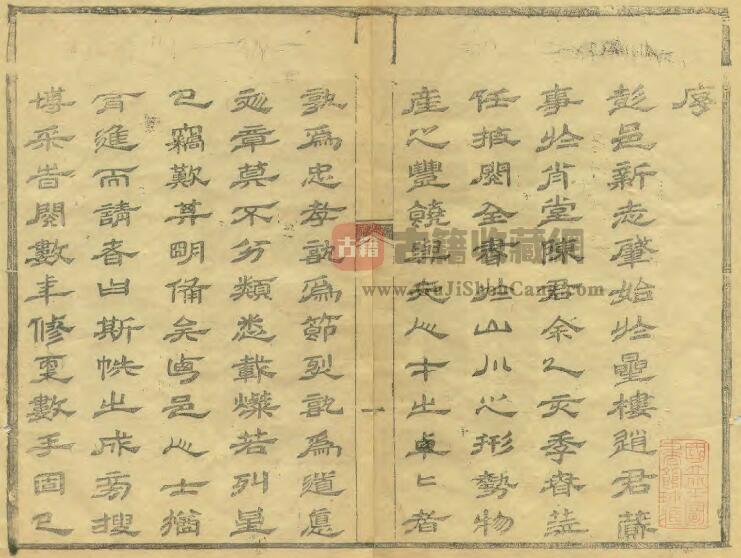 序
彭邑新志肇始於曐樓趙君蕆
事於肯堂陳君余乙亥季春蒞
任披閱全書於山川之形勢物
產之豐饒與夫人才之卓匕者
一
孰為忠孝孰為節烈孰為道悳
文章莫不分類悉載燦若列曐
已竊歎其明備矣而邑之士猶
有進而請者曰斯帙之成旁搜
博采昔閱數年修更數手固已
古籍
古籍收藏網
www.GuJiShuCang.com